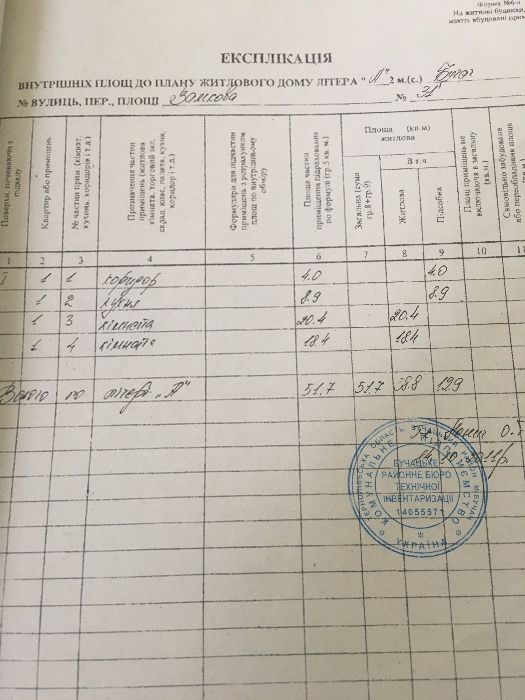 Форма №6-
На житлові будинки,
мають вбудовані прим
ЕКСПЛІКАЦІЯ
ВНУТРІШНІХ ПЛОЩ ДО ПЛАНУ ЖИТЛОВОГО ДОМУ ЛІТЕРА "А" 2 м.(с.)
№ ВУЛИЦЬ, ПЕР., ПЛОЩІ Замкова № 31
Поверхи, починаючи з підвалу
Квартир або приміщень
№ частин прим. (кімнат, кухонь, коридорів і т.д.)
Призначення частин приміщень (житлова кімната, торговий зал, склад, клас, палата, кухня, коридор і т.д.)
Формулери для підчастин приміщень з розрахунком площ по внутрішньому обміру
Площа частин приміщення підрахована по формулі (гр.5 кв. м.)
Площа (кв.м)
житлова
Загальна (сума гр.8+гр.9)
В т.ч
Житлова
Підсобна
Площ приміщень не включаючи в загальну (кв. м)
Самовільно забудована або переобладнана площа (кв.м)
1 2 3 4 5 6 7 8 9 10 11
I 1 1 коридор 4.0 4.0
1 2 кухня 8.9 8.9
1 3 кімната 20.4 20.4
1 4 кімната 18.4 18.4
Всього по літері "А" 51,7 51,7 38.8 12.9
14.10.2011р.
ТЕРНОПІЛЬСЬКА ОБЛАСТЬ БУЧАЦЬКИЙ РАЙОН М.БУЧАЧ
КОМУНАЛЬНЕ ПІДПРИЄМСТВО
БУЧАЦЬКЕ
РАЙОННЕ БЮРО
ТЕХНІЧНОЇ
ІНВЕНТАРИЗАЦІЇ
14055571
* УКРАЇНА *